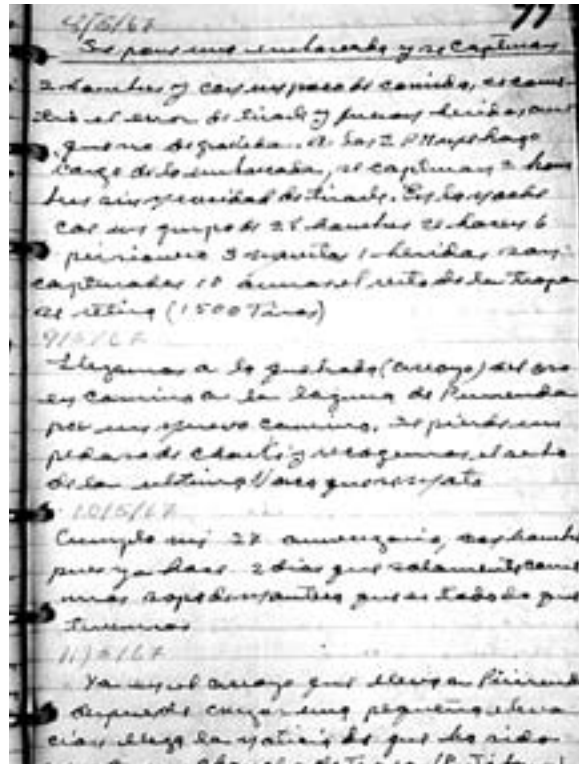 77
8/5/67
Se pone una emboscada y se capturan
2 hombres y con un poco de comida, se come-
tió el error de tirarle y fueron heridos aun
que no de gravedad. A las 2 PM me hago
cargo de la emboscada, se capturan 2 hom
bres sin necesidad de tirarle. En la noche
con un grupo de 28 hombres se hacen 6
prisionero 3 muertos 1 herido son
capturadas 10 armas el resto de la tropa
se retira (1500 Tiros)
9/5/67
Llegamos a la quebrada (arroyo) del oro
en camino a la laguna de Pirirenda
por un nuevo camino, se pierde un
pedazo de charki y recogemos el cebo
de la ultima Vaca que se mato
10/5/67
Cumplo mi 27 aniversario, con hambre
pues ya hace 2 dias que solamente come
mos sopa de manteca que es todo lo que
tenemos
11/5/67
Ya en el arroyo que lleva a Pirirenda
despues de cruzar una pequeña eleva
cion llega la noticia de que ha sido